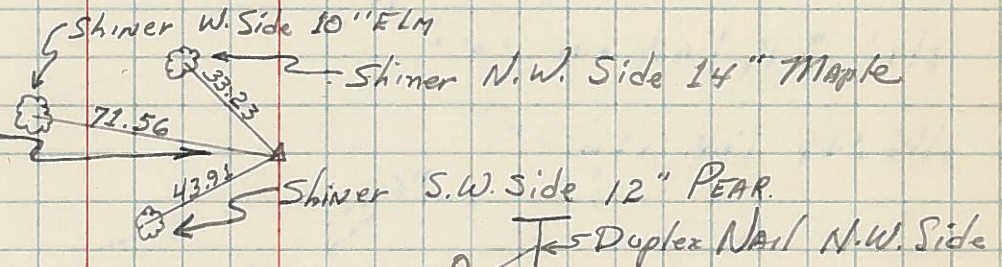 Shiner W. Side 10" ELM
33.23
Shiner N.W. Side 14" Maple
71.56
43.91
Shiner S.W. Side 12" PEAR.
Duplex NAil N.W. Side